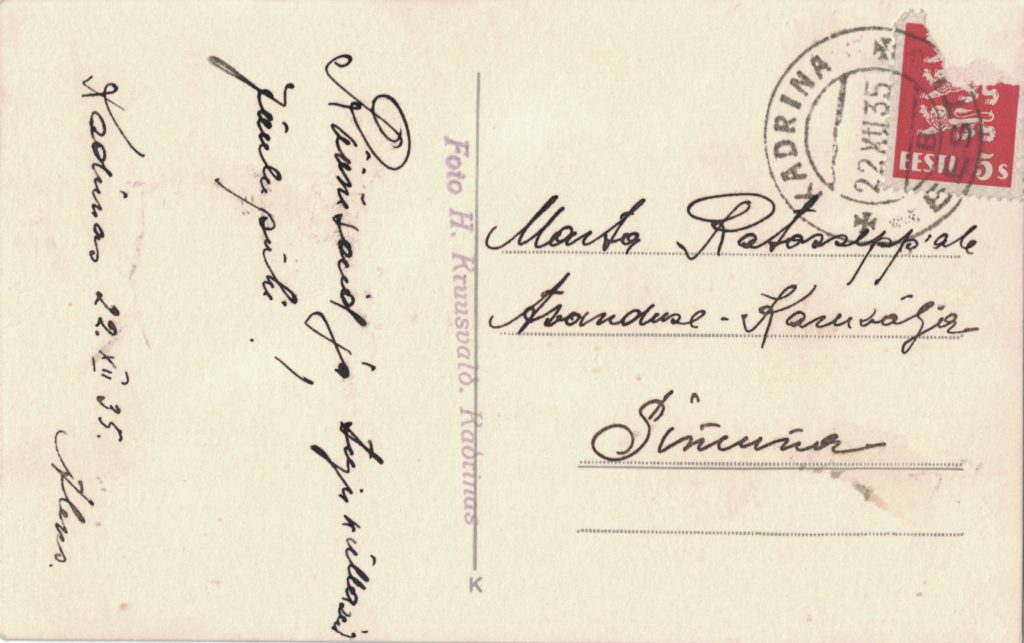 Rõõmsaid ja tujuküllasi
jõulupühi!
Kadrinas 22. XII 35.
Foto H. Kruusvald. Kadrinas
K
KADRINA
22 XII 35
EESTI
B
EESTI 5 s
Marta Ratassepp'ale
Avanduse-Karuvälja
Simuna